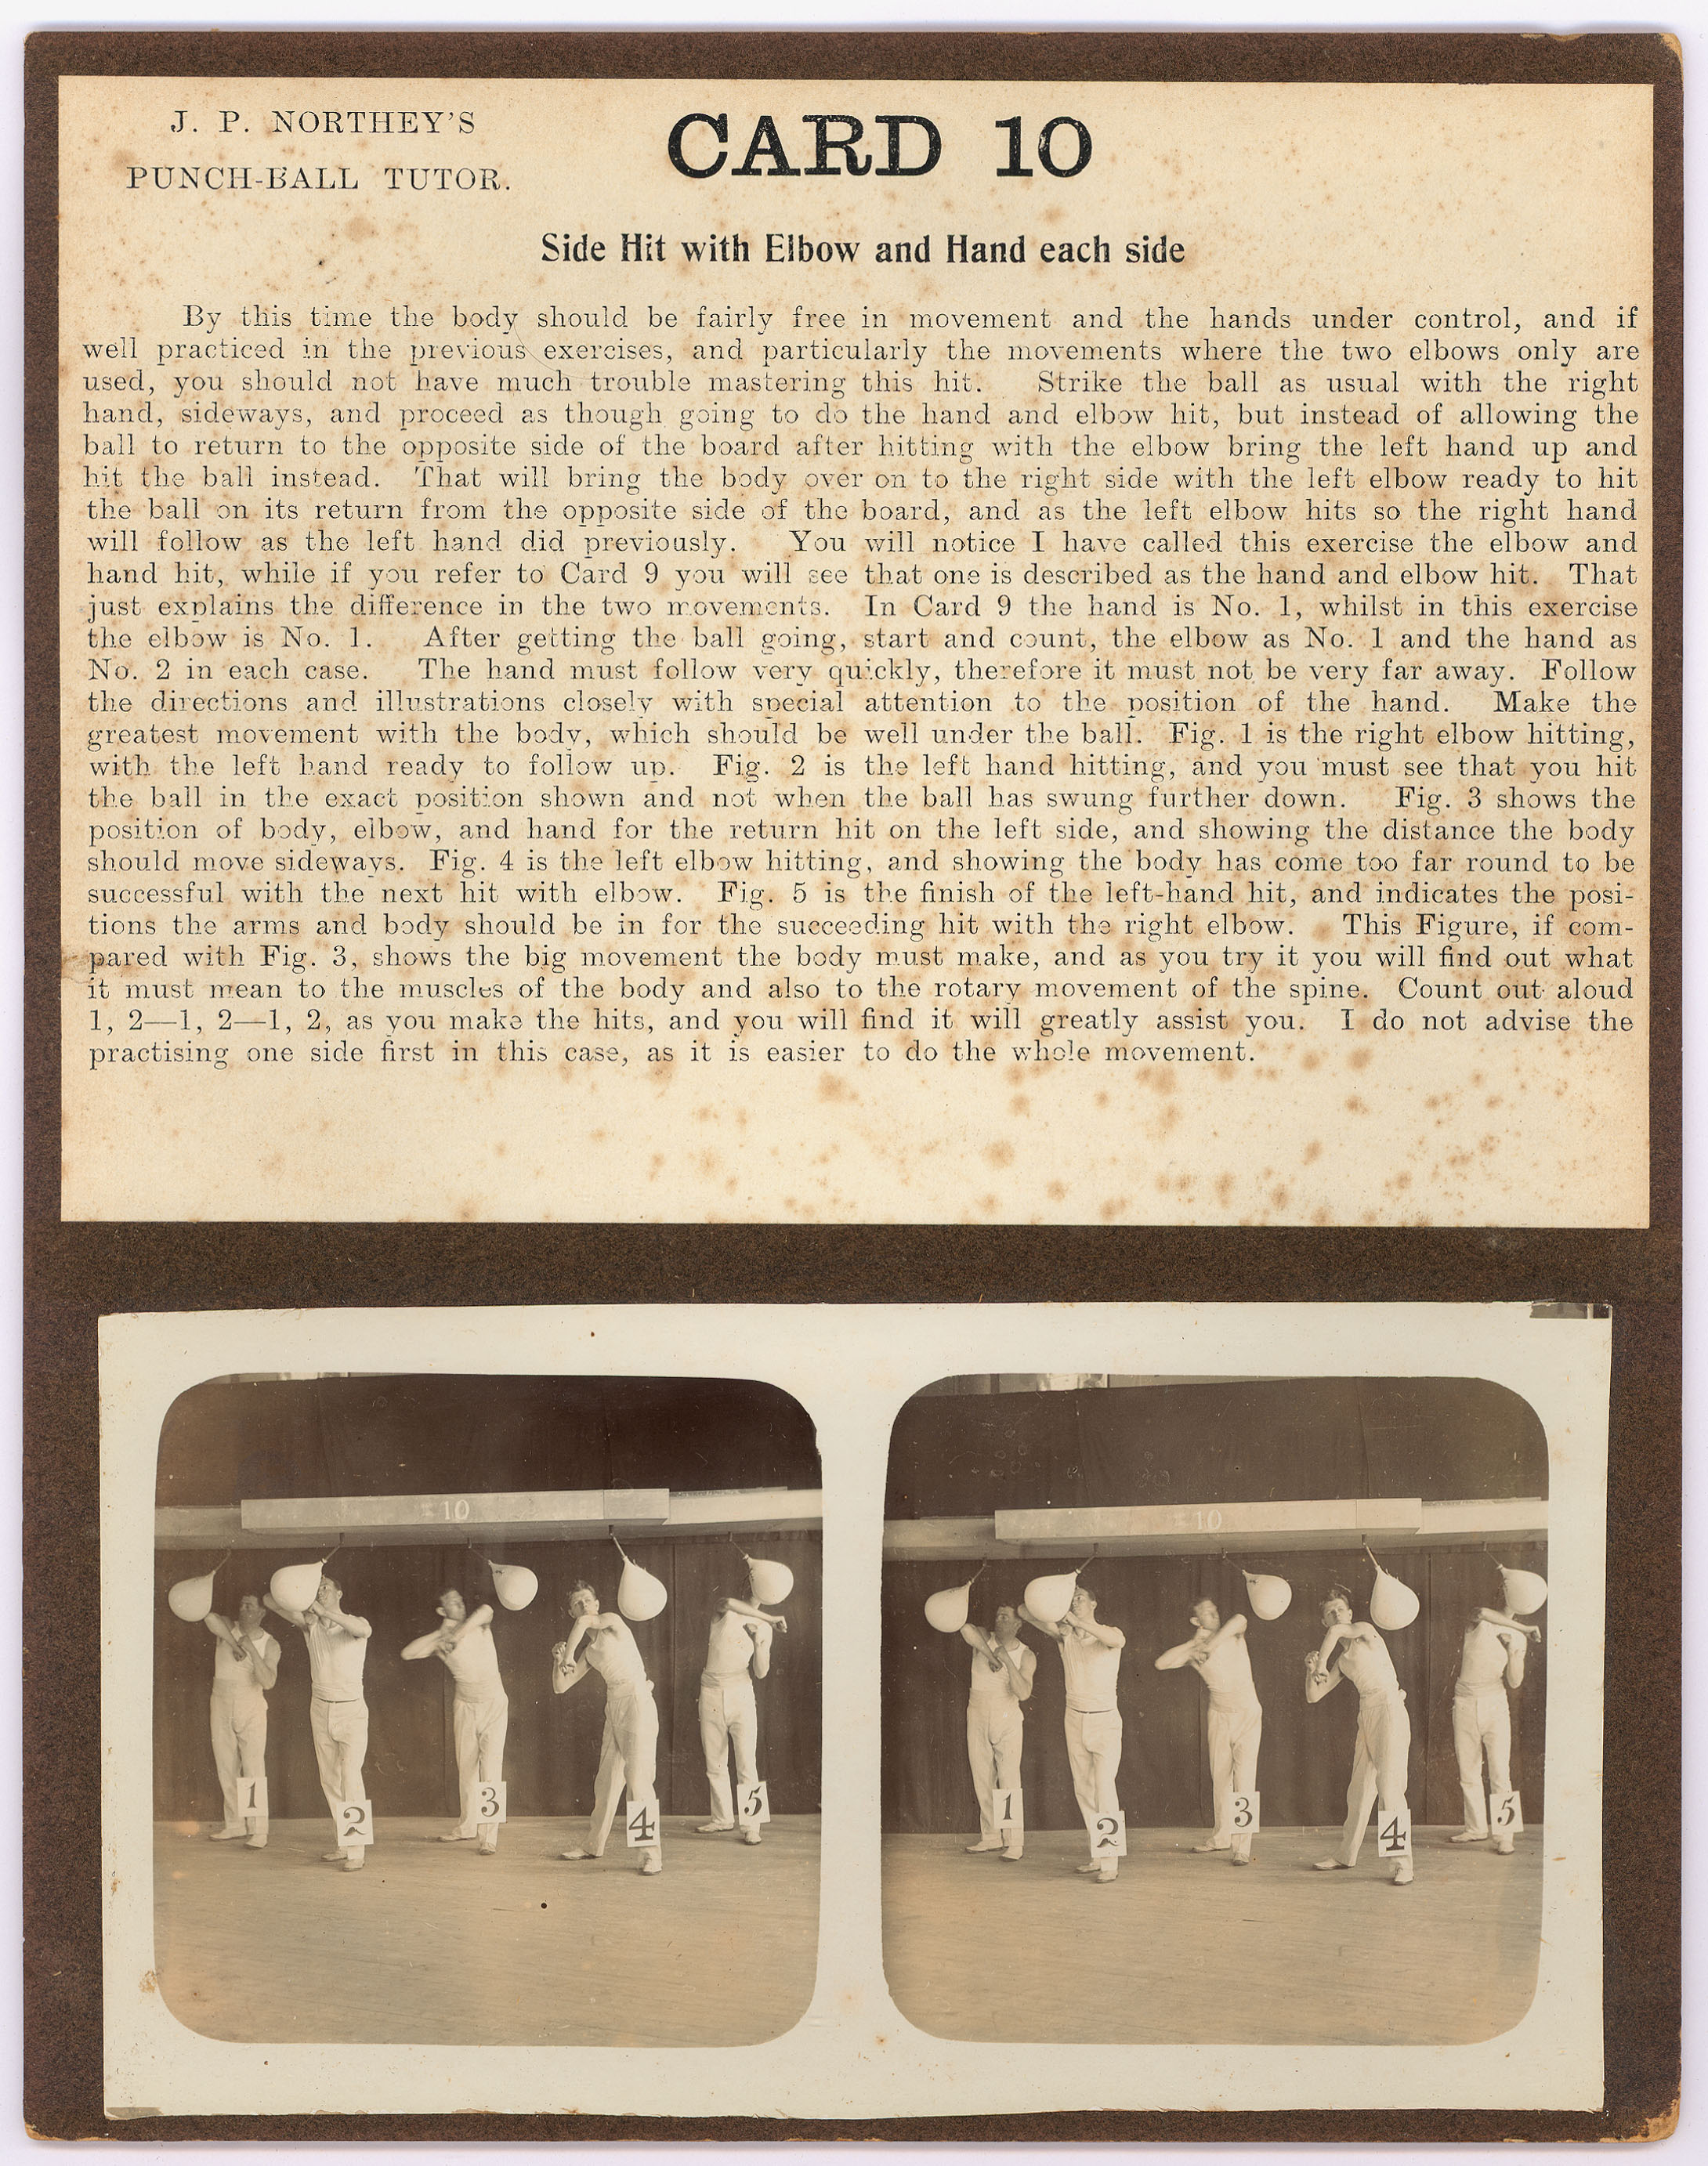 J. P. NORTHEY'S
PUNCH-BALL TUTOR.
CARD 10
Side Hit with Elbow and Hand each side
By this time the body should be fairly free in movement and the hands under control, and if
well practiced in the previous exercises, and particularly the movements where the two elbows only are
used, you should not have much trouble mastering this hit. Strike the ball as usual with the right
hand, sideways, and proceed as though going to do the hand and elbow hit, but instead of allowing the
ball to return to the opposite side of the board after hitting with the elbow bring the left hand up and
hit the ball instead. That will bring the body over on to the right side with the left elbow ready to hit
the ball on its return from the opposite side of the board, and as the left elbow hits so the right hand
will follow as the left hand did previously. You will notice I have called this exercise the elbow and
hand hit, while if you refer to Card 9 you will see that one is described as the hand and elbow hit. That
just explains the difference in the two movements. In Card 9 the hand is No. 1, whilst in this exercise
the elbow is No. 1. After getting the ball going, start and count, the elbow as No. 1 and the hand as
No. 2 in each case. The hand must follow very quickly, therefore it must not be very far away. Follow
the directions and illustrations closely with special attention to the position of the hand. Make the
greatest movement with the body, which should be well under the ball. Fig. 1 is the right elbow hitting,
with the left hand ready to follow up. Fig. 2 is the left hand hitting, and you must see that you hit
the ball in the exact position shown and not when the ball has swung further down. Fig. 3 shows the
position of body, elbow, and hand for the return hit on the left side, and showing the distance the body
should move sideways. Fig. 4 is the left elbow hitting, and showing the body has come too far round to be
successful with the next hit with elbow. Fig. 5 is the finish of the left-hand hit, and indicates the posi-
tions the arms and body should be in for the succeeding hit with the right elbow. This Figure, if com-
pared with Fig. 3, shows the big movement the body must make, and as you try it you will find out what
it must mean to the muscles of the body and also to the rotary movement of the spine. Count out aloud
1, 2—1, 2—1, 2, as you make the hits, and you will find it will greatly assist you. I do not advise the
practising one side first in this case, as it is easier to do the whole movement.
10
1
2
3
4
5
10
1
2
3
4
5